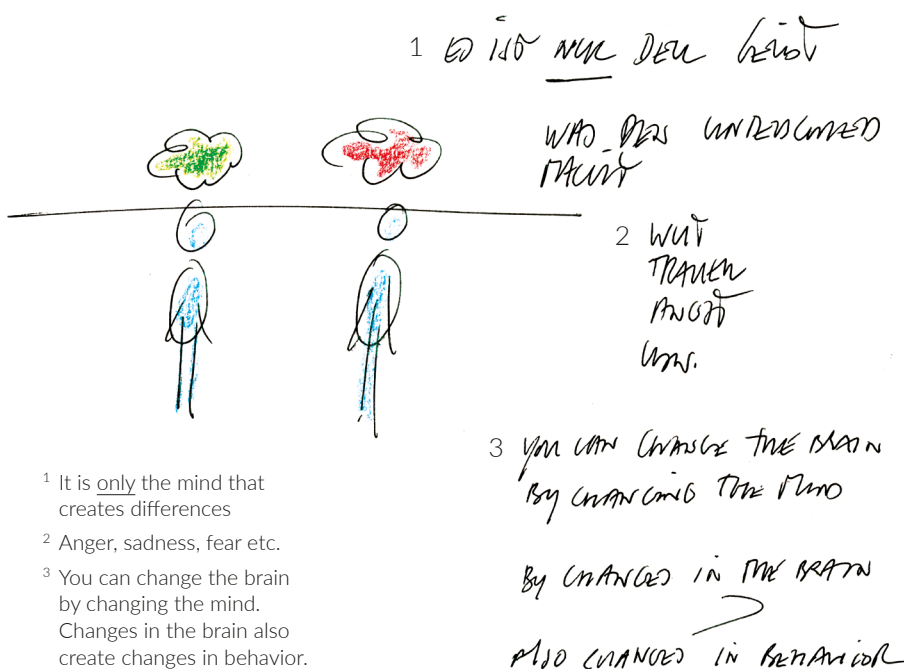 1 ES IST NUR DER GEIST
WAS DEN UNTERSCHIED
MACHT
2 WUT
TRAUER
ANGST
USW.
3 YOU CAN CHANGE THE BRAIN
BY CHANGING THE MIND
BY CHANGES IN THE BRAIN
ALSO CHANGES IN BEHAVIOR
1 It is only the mind that
creates differences
2 Anger, sadness, fear etc.
3 You can change the brain
by changing the mind.
Changes in the brain also
create changes in behavior.